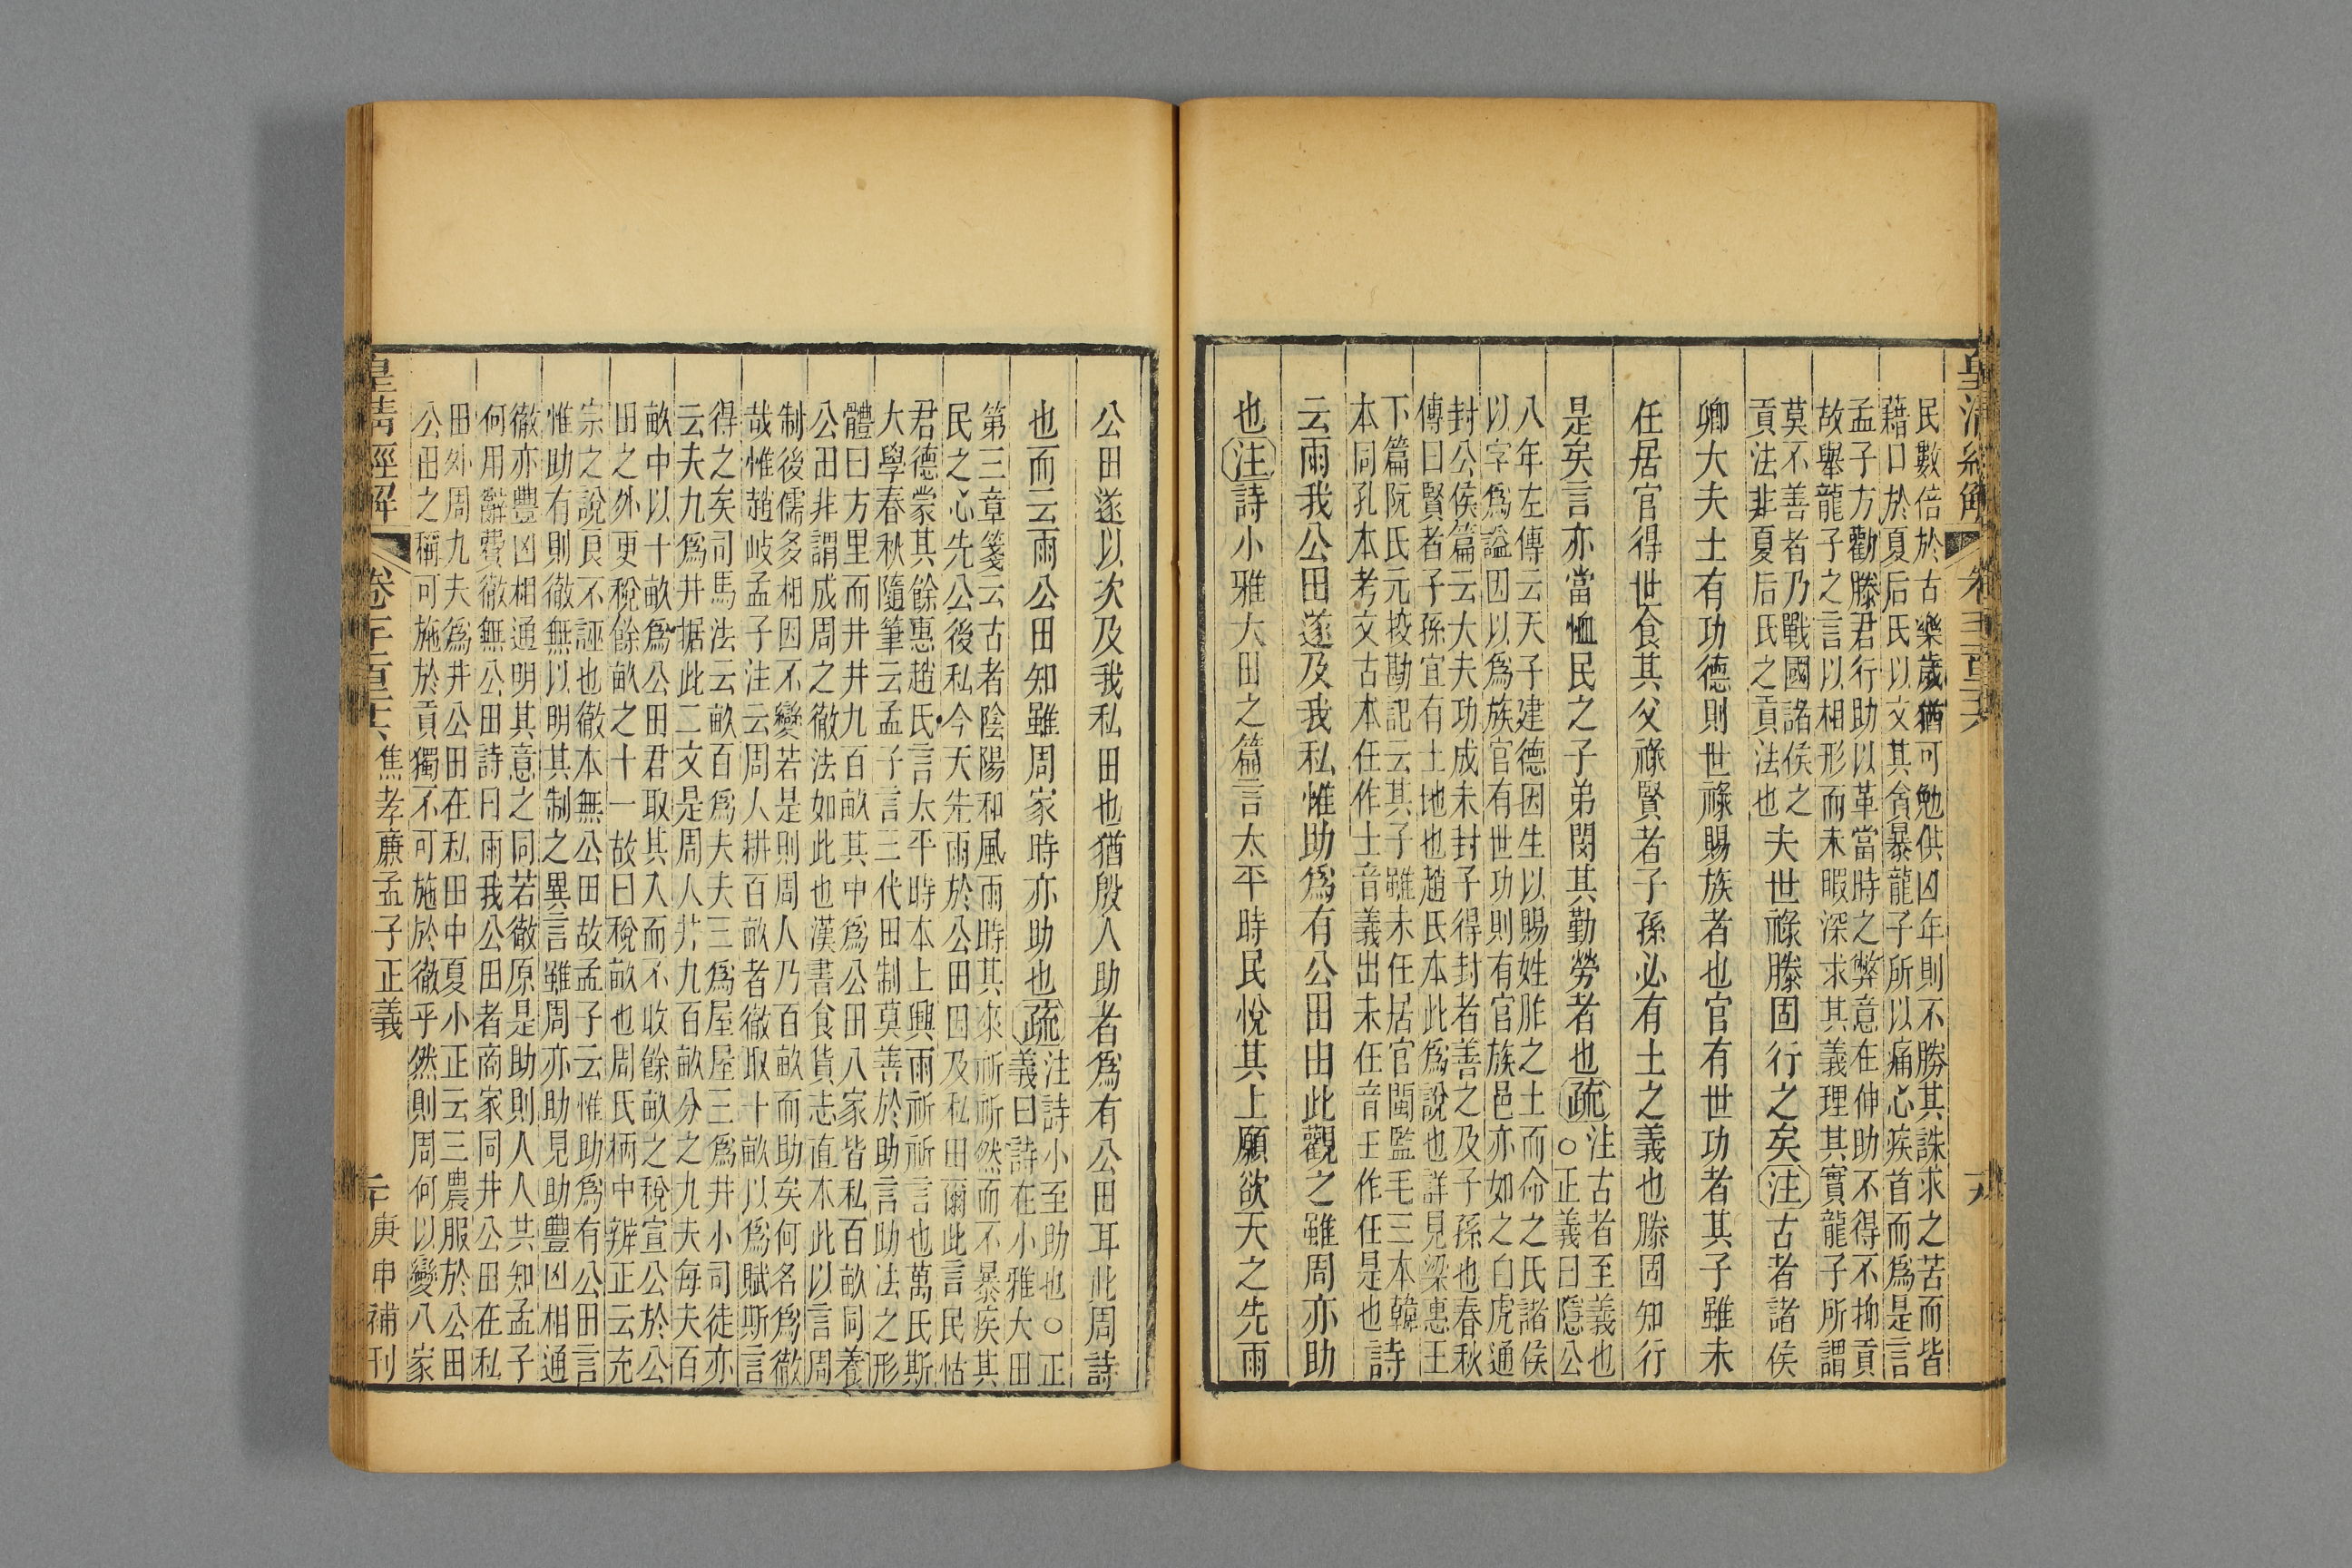 皇清經解
卷三百三六
民數倍於古樂歲猶可勉供凶年則不勝其誅求之苦而皆
藉口於夏后氏以文其貪暴龍子所以痛心疾首而爲是言
孟子方勸滕君行助以革當時之弊意在伸助不得不抑貢
故舉龍子之言以相形而未暇深求其義理其實龍子所謂
莫不善者乃戰國諸侯之
貢法非夏后氏之貢法也
夫世祿滕固行之矣注古者諸侯
卿大夫士有功德則世祿賜族者也官有世功者其子雖未
任居官得世食其父祿賢者子孫必有土之義也滕固知行
是矣言亦當恤民之子弟閔其勤勞者也疏
注古者至義也
○正義曰隱公
八年左傳云天子建德因生以賜姓胙之土而命之氏諸侯
以字爲謚因以爲族官有世功則有官族邑亦如之白虎通
封公侯篇云大夫功成未封子得封者善之及子孫也春秋
傳曰賢者子孫宜有土地也趙氏本此爲說也詳見梁惠王
下篇阮氏元挍勘記云其子雖未任居官閩監毛三本韓
本同孔本考文古本任作士音義出未任音壬作任是也
詩
云雨我公田遂及我私惟助爲有公田由此觀之雖周亦助
也注詩小雅大田之篇言太平時民悅其上願欲天之先雨
公田遂以次及我私田也猶殷人助者爲有公田耳此周詩
也而云雨公田知雖周家時亦助也疏
注詩小至助也○正
義曰詩在小雅大田
第三章箋云古者陰陽和風雨時其來祈祈然而不暴疾其
民之心先公後私今天先雨於公田因及私田爾此言民怙
君德蒙其餘惠趙氏言太平時本上興雨祈祈言也萬氏斯
大學春秋隨筆云孟子言三代田制莫善於助言助法之形
體曰方里而井井九百畝其中爲公田八家皆私百畝同養
公田非謂成周之徹法如此也漢書食貨志直本此以言周
制後儒多相因不變若是則周人乃百畝而助矣何名爲徹
哉惟趙岐孟子注云周人耕百畝者徹取十畝以爲賦斯言
得之矣司馬法云畝百爲夫夫三爲屋屋三爲井小司徒亦
云夫九爲井据此二文是周人井九百畝分之九夫每夫百
畝中以十畝爲公田君取其入而不收餘畝之稅宣公於公
田之外更稅餘畝之十一故曰稅畝也周氏柄中辨正云充
宗之說良不誣也徹本無公田故孟子云惟助爲有公田言
惟助有則徹無以明其制之異言雖周亦助見助豐凶相通
徹亦豐凶相通明其意之同若徹原是助則人人共知孟子
何用辭費徹無公田詩曰雨我公田者商家同井公田在私
田外周九夫爲井公田在私田中夏小正云三農服於公田
公田之稱可施於貢獨不可施於徹乎然則周何以變八家
皇清經解
卷三百三六
焦孝廉孟子正義
庚申補刊